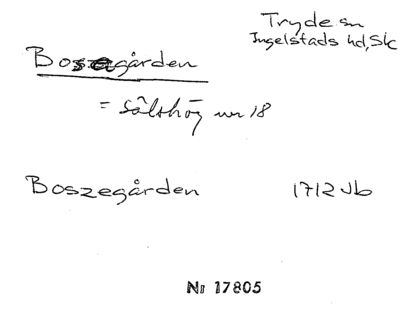 Tryde sn
Ingelstads hd, Sk
Bosegården
= Sälshög nr 18
Boszegården 1712 Jb
Nr 17805